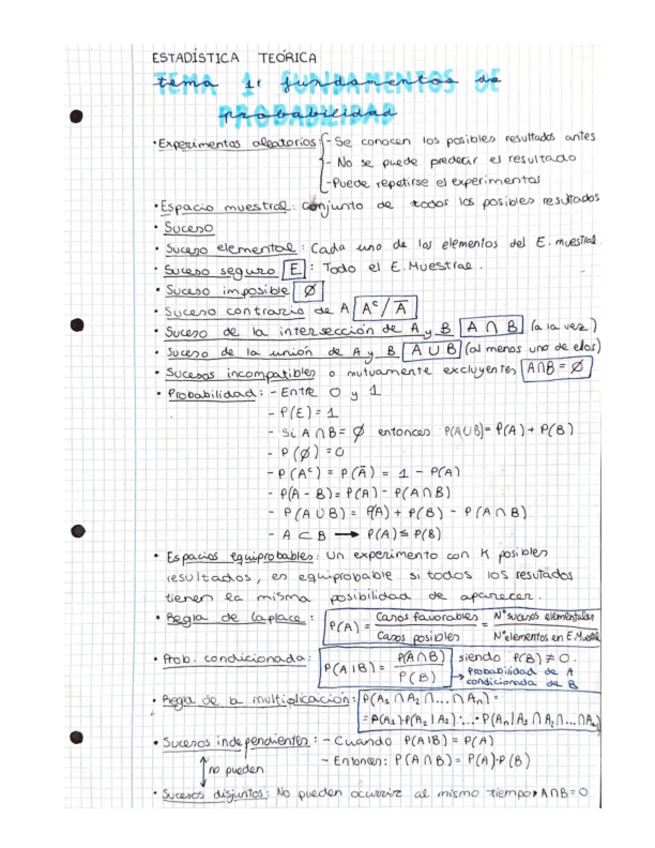 ESTADÍSTICA TEÓRICA
tema 1: fundamentos de
TEMA 1: FUNDAMENTOS DE
probabilidad
PROBABILIDAD
• Experimentos aleatorios - Se conocen los posibles resultados antes
- No se puede predecir el resultado
- Puede repetirse el experimentos
• Espacio muestral: Conjunto de todos los posibles resultados
• Suceso
• Suceso elemental: Cada uno de los elementos del E. muestral.
• Suceso seguro E : Todo el E. Muestral.
• Suceso imposible Ø
• Suceso contrario de A Aᶜ/Ā
• Suceso de la intersección de A y B A ∩ B (a la vez)
• Suceso de la unión de A y B A ∪ B (al menos uno de ellos)
• Sucesos incompatibles o mutuamente excluyentes A∩B = Ø
• Probabilidad: - Entre 0 y 1
- P(E) = 1
- Si A ∩ B = Ø entonces P(A∪B) = P(A) + P(B)
- P(Ø) = 0
- P(Aᶜ) = P(Ā) = 1 - P(A)
- P(A - B) = P(A) - P(A∩B)
- P(A∪B) = P(A) + P(B) - P(A∩B)
- A ⊂ B → P(A) ≤ P(B)
• Espacios equiprobables: Un experimento con K posibles
resultados, es equiprobable si todos los resultados
tienen la misma posibilidad de aparecer.
• Regla de Laplace: P(A) = Casos favorables / Casos posibles = Nº sucesos elementales / Nº elementos en E. Muestral
• Prob. condicionada: P(A|B) = P(A∩B) / P(B) siendo P(B) ≠ 0.
→ Probabilidad de A
condicionada de B
• Regla de la multiplicación: P(A₁ ∩ A₂ ∩ ... ∩ Aₙ) =
= P(A₁)·P(A₂|A₁)·...·P(Aₙ|A₁∩A₂∩...∩Aₙ)
• Sucesos independientes: - Cuando P(A|B) = P(A)
- Entonces: P(A∩B) = P(A)·P(B)
no pueden
• Sucesos disjuntos: No pueden ocurrir al mismo tiempo → A∩B = 0